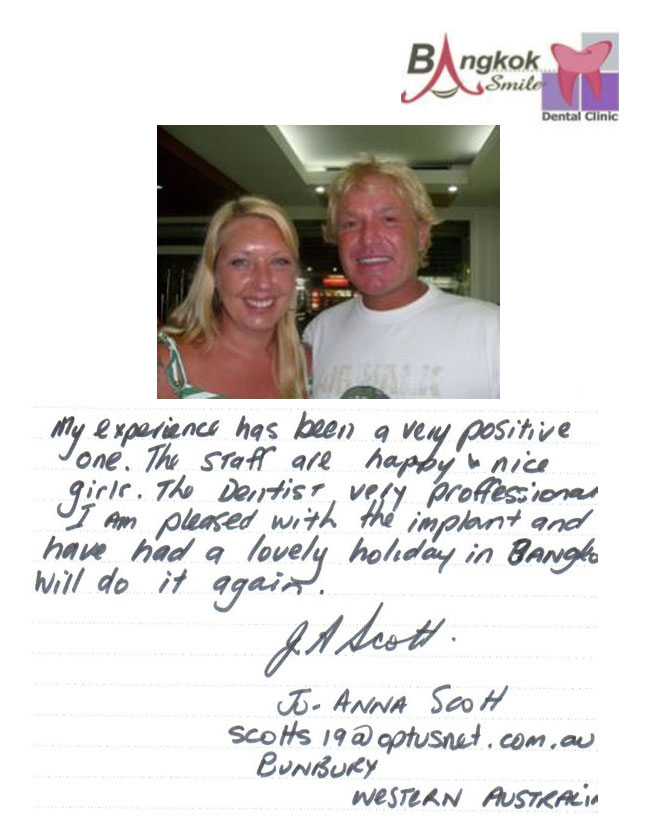 BAngkok
Smile
Dental Clinic
My experience has been a very positive
one. The staff are happy & nice
girls. The Dentist very proffessional
I Am pleased with the implant and
have had a lovely holiday in BANGko
Will do it again.
J.A Scott.
JO-ANNA SCOTT
scotts19@optusnet.com.au
BUNBURY
WESTERN AUSTRALIA